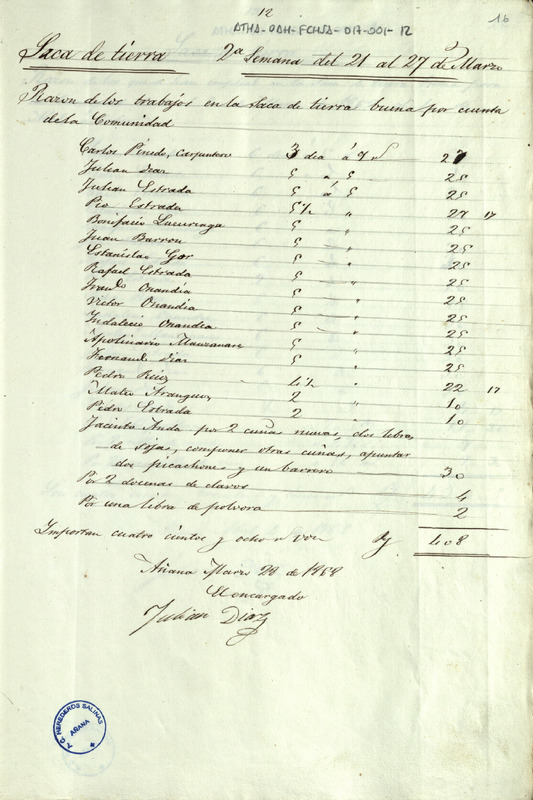 12
ATHA-DAH-FCHSA-017-001-12
16
Saca de tierra 2ª Semana del 21 al 27 de Marzo
Razon de los trabajos en la Saca de tierra buena por cuenta
de la Comunidad
Carlos Pinedo, Carpintero 3 dia á 9 rs 27
Julian Diaz 5 a 5 25
Julian Estrada 5 á 5 25
Pio Estrada 5½ " 27 17
Bonifacio 5 " 25
Juan Barron 5 25
Estanislao 5 " 25
Rafael Estrada 5 " 25
Onandia 5 " 25
Victor Onandia 5 " 25
Indalecio Onandia 5 " 25
Apolinario Manzanare 5 " 25
Fernando Diaz 5 " 25
Pedro Ruiz 4½ " 22 17
Mateo Aranguez 2 " 10
Pedro Estrada 2 " 10
Jacinto Anda por 2 cuñas nuevas, dos libras
de sojas, componer otras cuñas, apuntar
dos picachones y un barreno 30
Por 2 docenas de clavos 4
Por una libra de polvora 2
Importan cuatro cientos y ocho rs von 408
Añana Marzo 28 de 1868
El encargado
Julian Diaz
A.C. HEREDEROS SALINAS
AÑANA